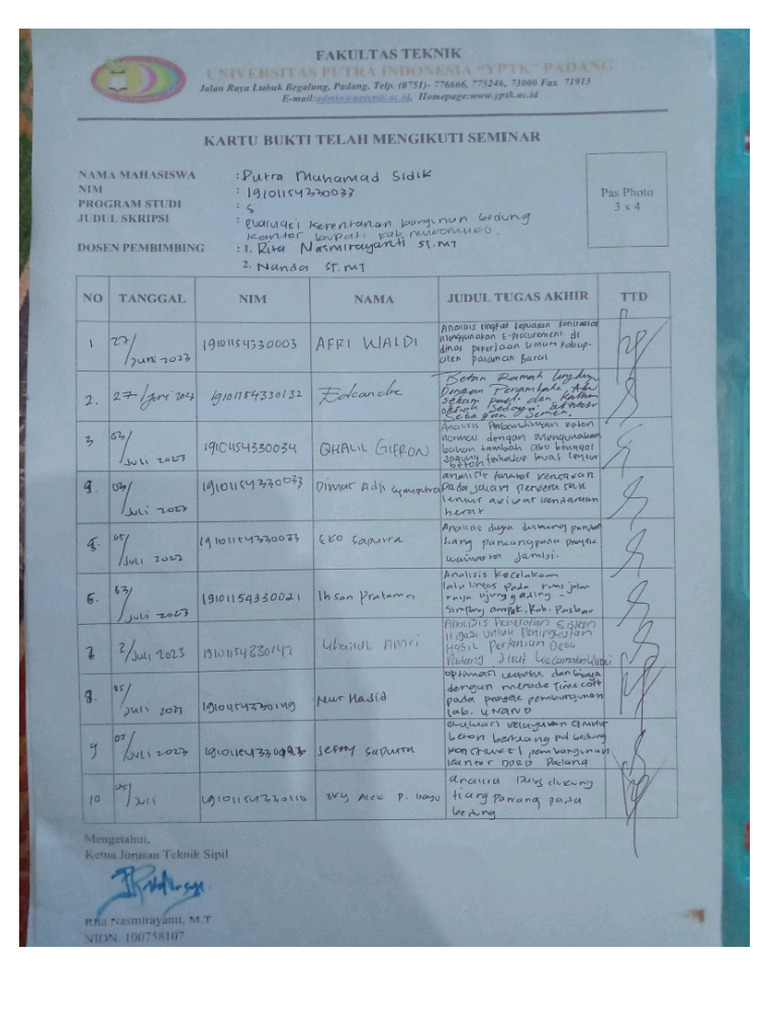 FAKULTAS TEKNIK
UNIVERSITAS PUTRA INDONESIA "YPTK" PADANG
Jalan Raya Lubuk Begalung, Padang, Telp. (0751)- 776666, 775246, 73000 Fax 71913
E-mail:admin@upiyptk.ac.id, Homepage:www.yptk.ac.id
KARTU BUKTI TELAH MENGIKUTI SEMINAR
NAMA MAHASISWA : Putra Muhamad Sidik
NIM : 19101154330033
PROGRAM STUDI : S
JUDUL SKRIPSI : evaluasi kerentanan bangunan gedung
kantor bupati kab. mukomuko.
DOSEN PEMBIMBING : 1. Rita Nasmirayanti ST.MT
2. Nanda ST.MT
Pas Photo
3 x 4
NO TANGGAL NIM NAMA JUDUL TUGAS AKHIR TTD
1 27/Juni 2023 19101154330003 AFRI WALDI Analisis tingkat kepuasan
menggunakan E-Procurement di
dinas pekerjaan umum kabup-
aten pasaman Barat
2. 27/Juni 19101154330132 Beton Ramah
Dengan
dan
Sebagai
Semen.
3 03/Juli 2023 19101154330034 QHALIL GIFRON Analisis Perbandingan beton
normal dengan menggunakan
bahan tambah abu bonggol
jagung terhadap kuat lentur
beton
03/Juli 2023 19101154330033 Dimat Adji analisis
pada jalan
lentur akibat kendaraan
berat
05/Juli 2023 19101154330073 Eko Saputra Analisis daya dukung
tiang pancang pada proyek
jambi.
6. 03/Juli 2023 19101154330021 Ihsan Pratama Analisis kecelakaan
lalu lintas pada ruas jalan
raya ujung gading -
Simpang ampek, Kab. Pasbar
7 3/Juli 2023 19101154330142 Amri Analisis Penerapan Sistem
Irigasi untuk Peningkatan
Hasil Pertanian Desa
Padang
8. 05/Juli 2023 19101154330149 Nur Hasid optimasi waktu dan biaya
dengan metode Time cost
pada proyek pembangunan
lab. UNAND
9 05/Juli 2023 Jefry Saputra evaluasi kelayakan struktur
beton bertulang pd gedung
konstruksi pembangunan
kantor DPRD Padang
10 05/Juli 19101154330110 Alek P. analisa daya dukung
tiang pancang pada
gedung
Mengetahui,
Ketua Jurusan Teknik Sipil
Rita Nasmirayanti, M.T
NIDN. 100758107